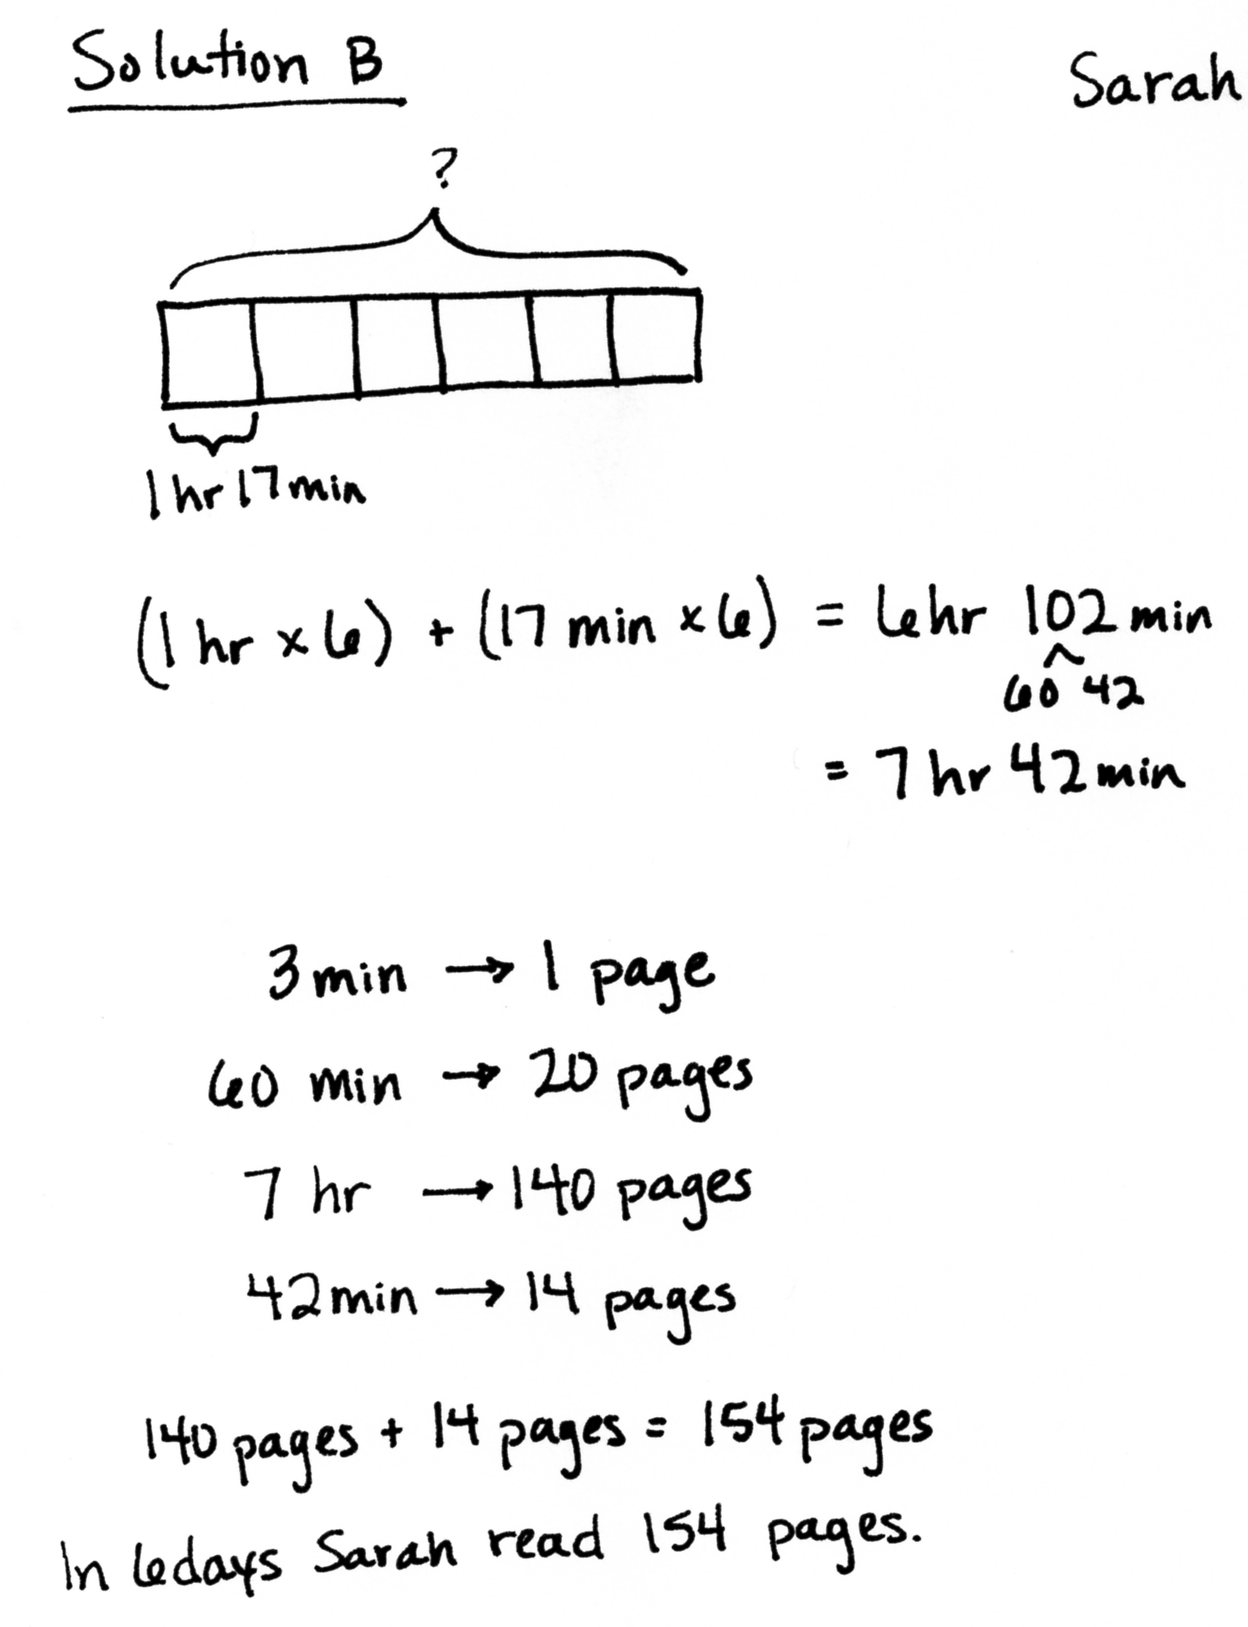 Solution B
Sarah
?
1 hr 17 min
(1 hr × 6) + (17 min × 6) = 6 hr 102 min
60 42
= 7 hr 42 min
3 min → 1 page
60 min → 20 pages
7 hr → 140 pages
42 min → 14 pages
140 pages + 14 pages = 154 pages
In 6 days Sarah read 154 pages.